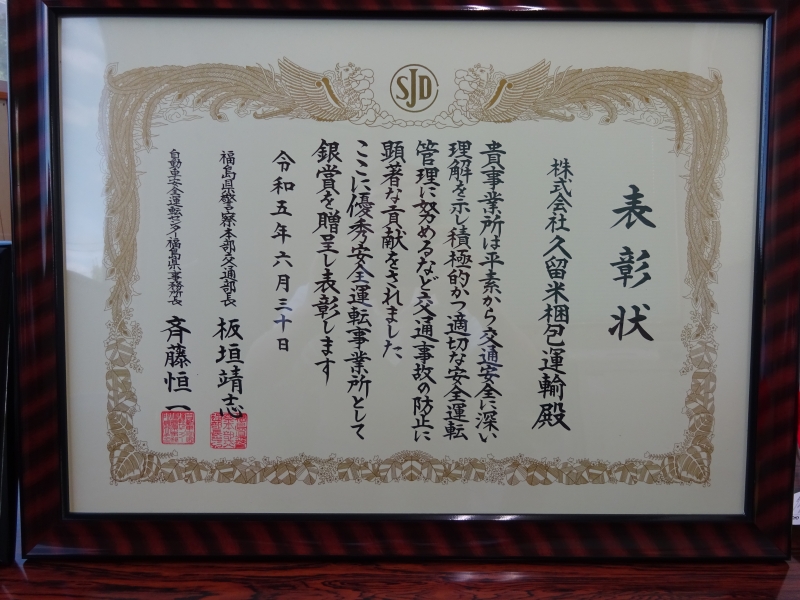 SJD
表彰状
株式会社久留米梱包運輸殿
貴事業所は平素から交通安全に深い
理解を示し積極的かつ適切な安全運転
管理に努めるなど交通事故の防止に
顕著な貢献をされました
ここに優秀安全運転事業所として
銀賞を贈呈し表彰します
令和五年六月三十日
福島県警察本部交通部長 板垣靖志
自動車安全運転センター福島県事務所長 斉藤恒一